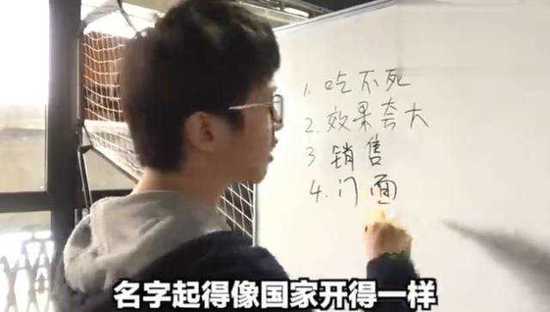 1. 吃不死
2. 效果夸大
3. 销售
4. 门面
名字起得像国家开得一样